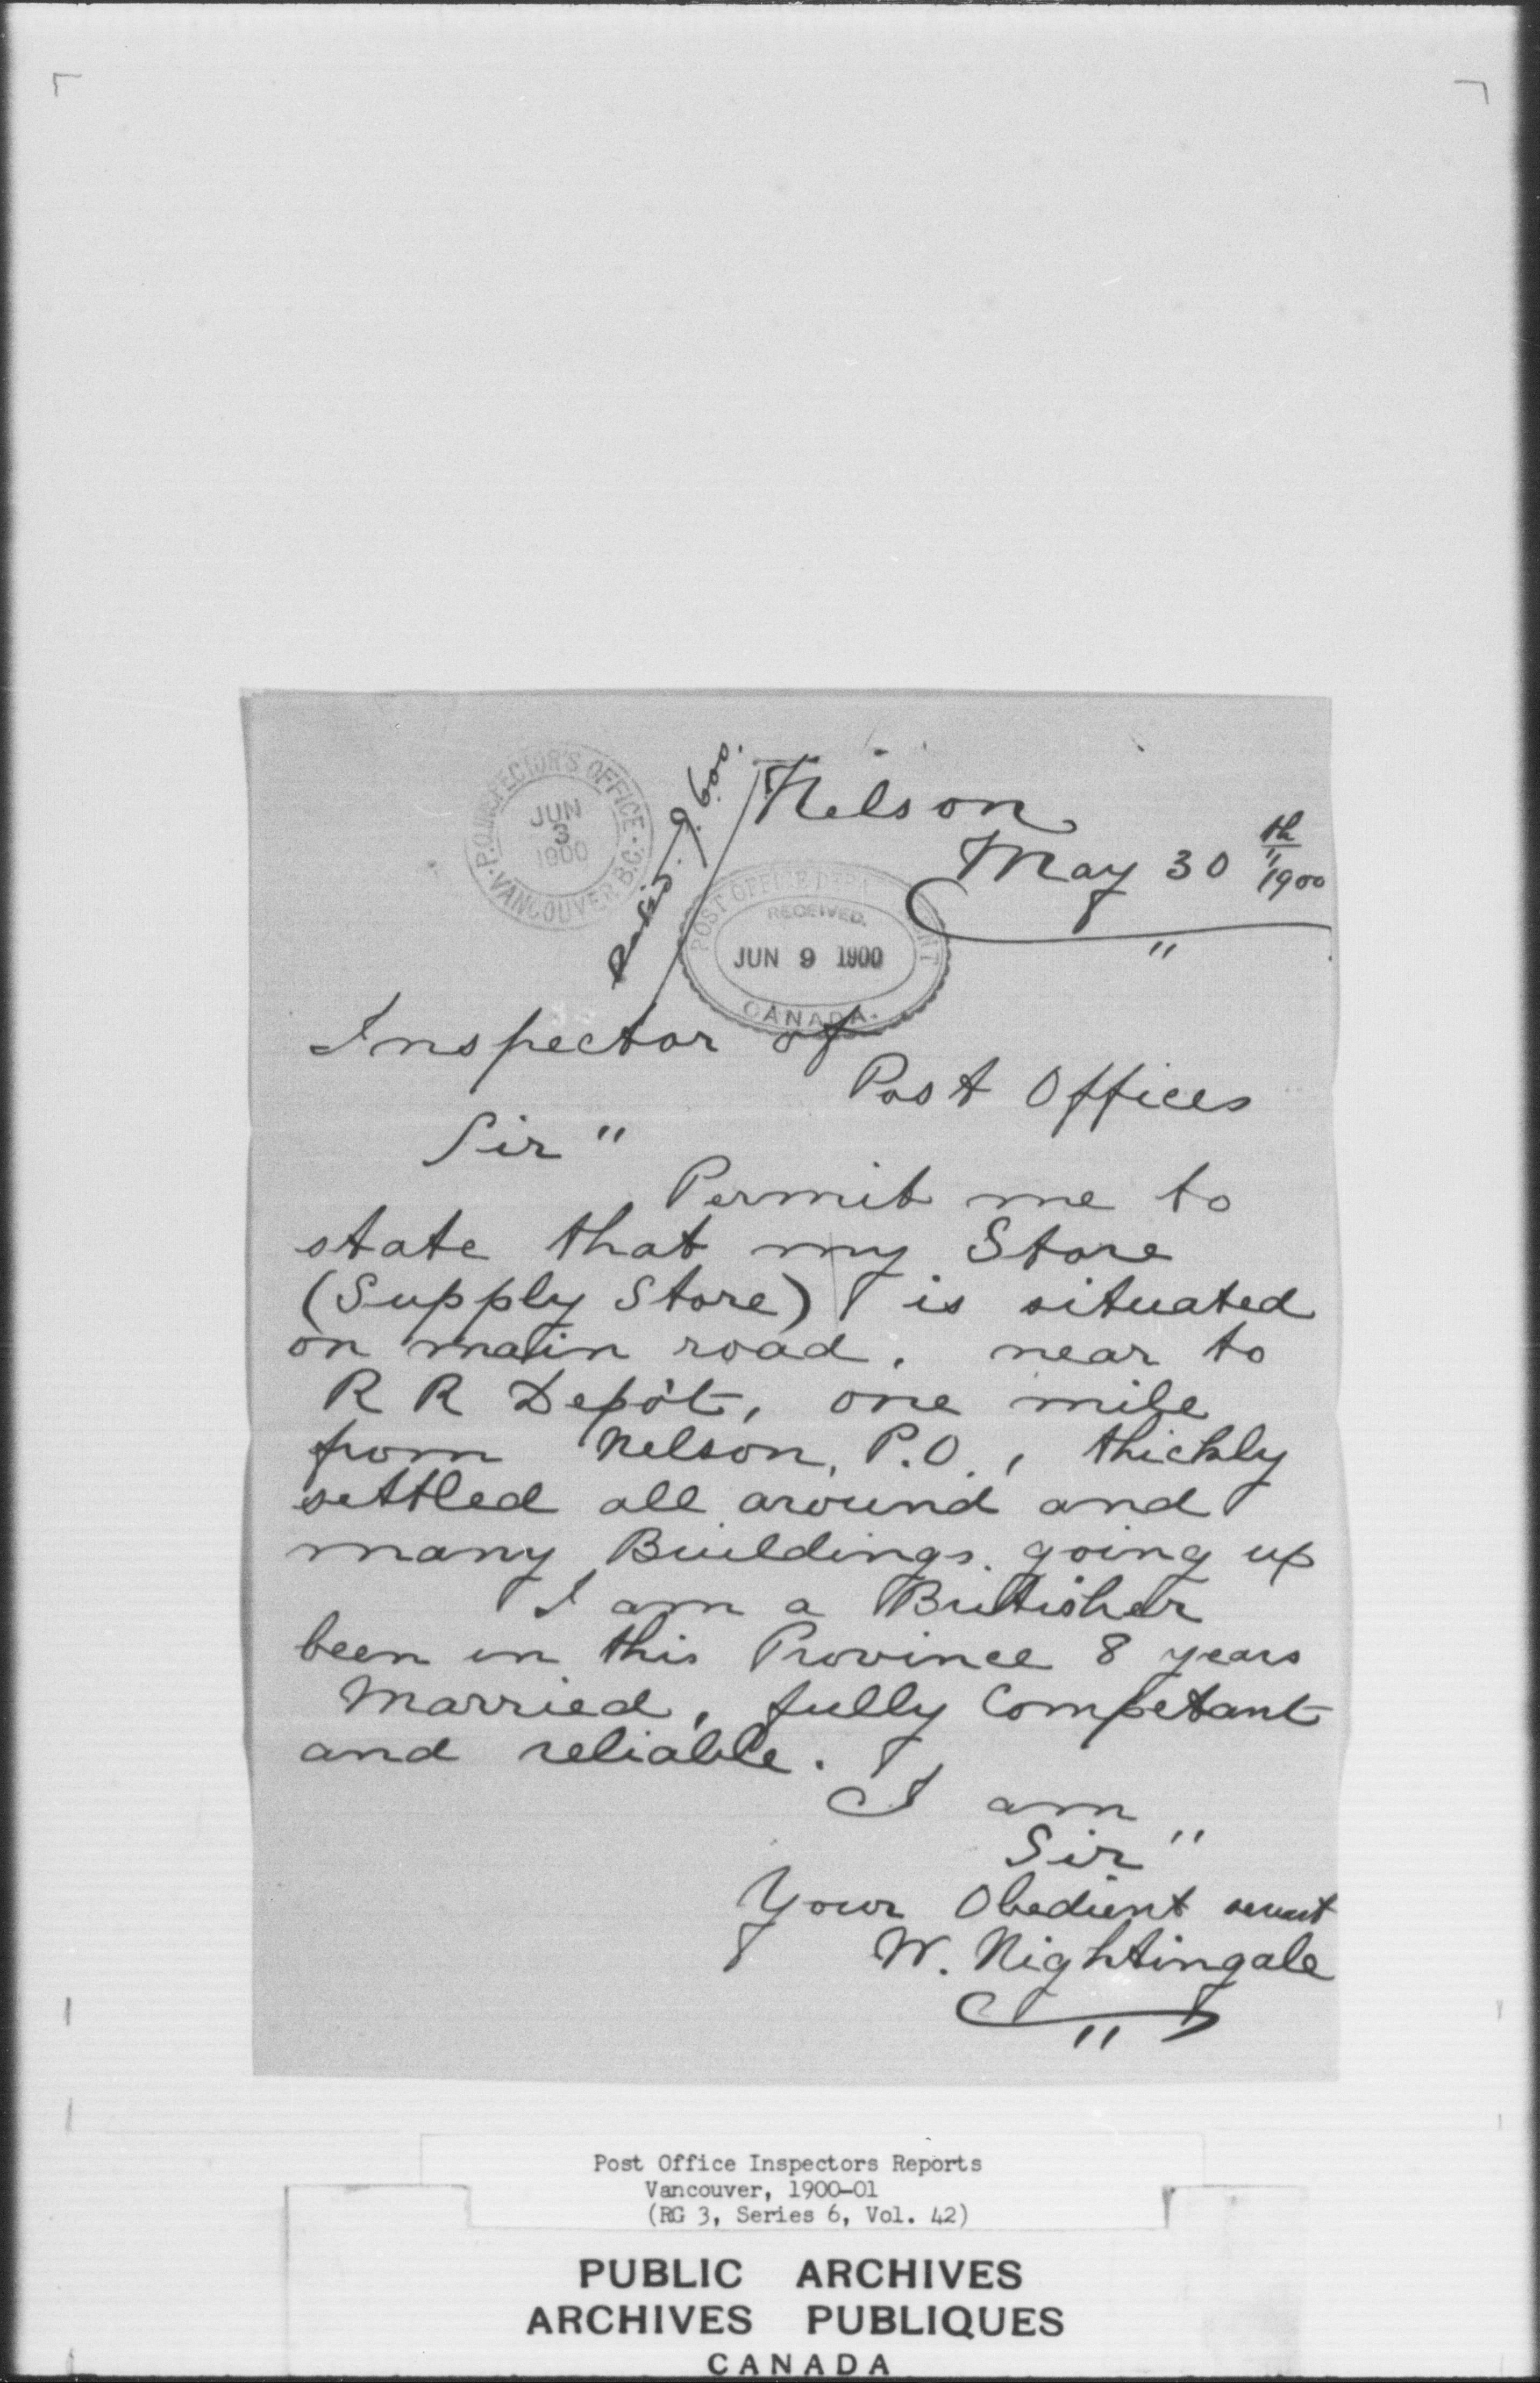 P.O. INSPECTOR'S OFFICE
JUN
3
1900
VANCOUVER B.C.
Nelson
May 30th 1900
POST OFFICE DEPARTMENT
RECEIVED.
JUN 9 1900
CANADA.
Inspector of
Post Offices
Sir "
Permit me to
state that my Store
(Supply Store) is situated
on main road. near to
R R Depôt, one mile
from Nelson, P.O., thickly
settled all around and
many Buildings going up
I am a Britisher
been in this Province 8 years
Married, fully Competant
and reliable.
I am
Sir "
Your Obedient servant
W. Nightingale
Post Office Inspectors Reports
Vancouver, 1900-01
(RG 3, Series 6, Vol. 42)
PUBLIC ARCHIVES
ARCHIVES PUBLIQUES
CANADA